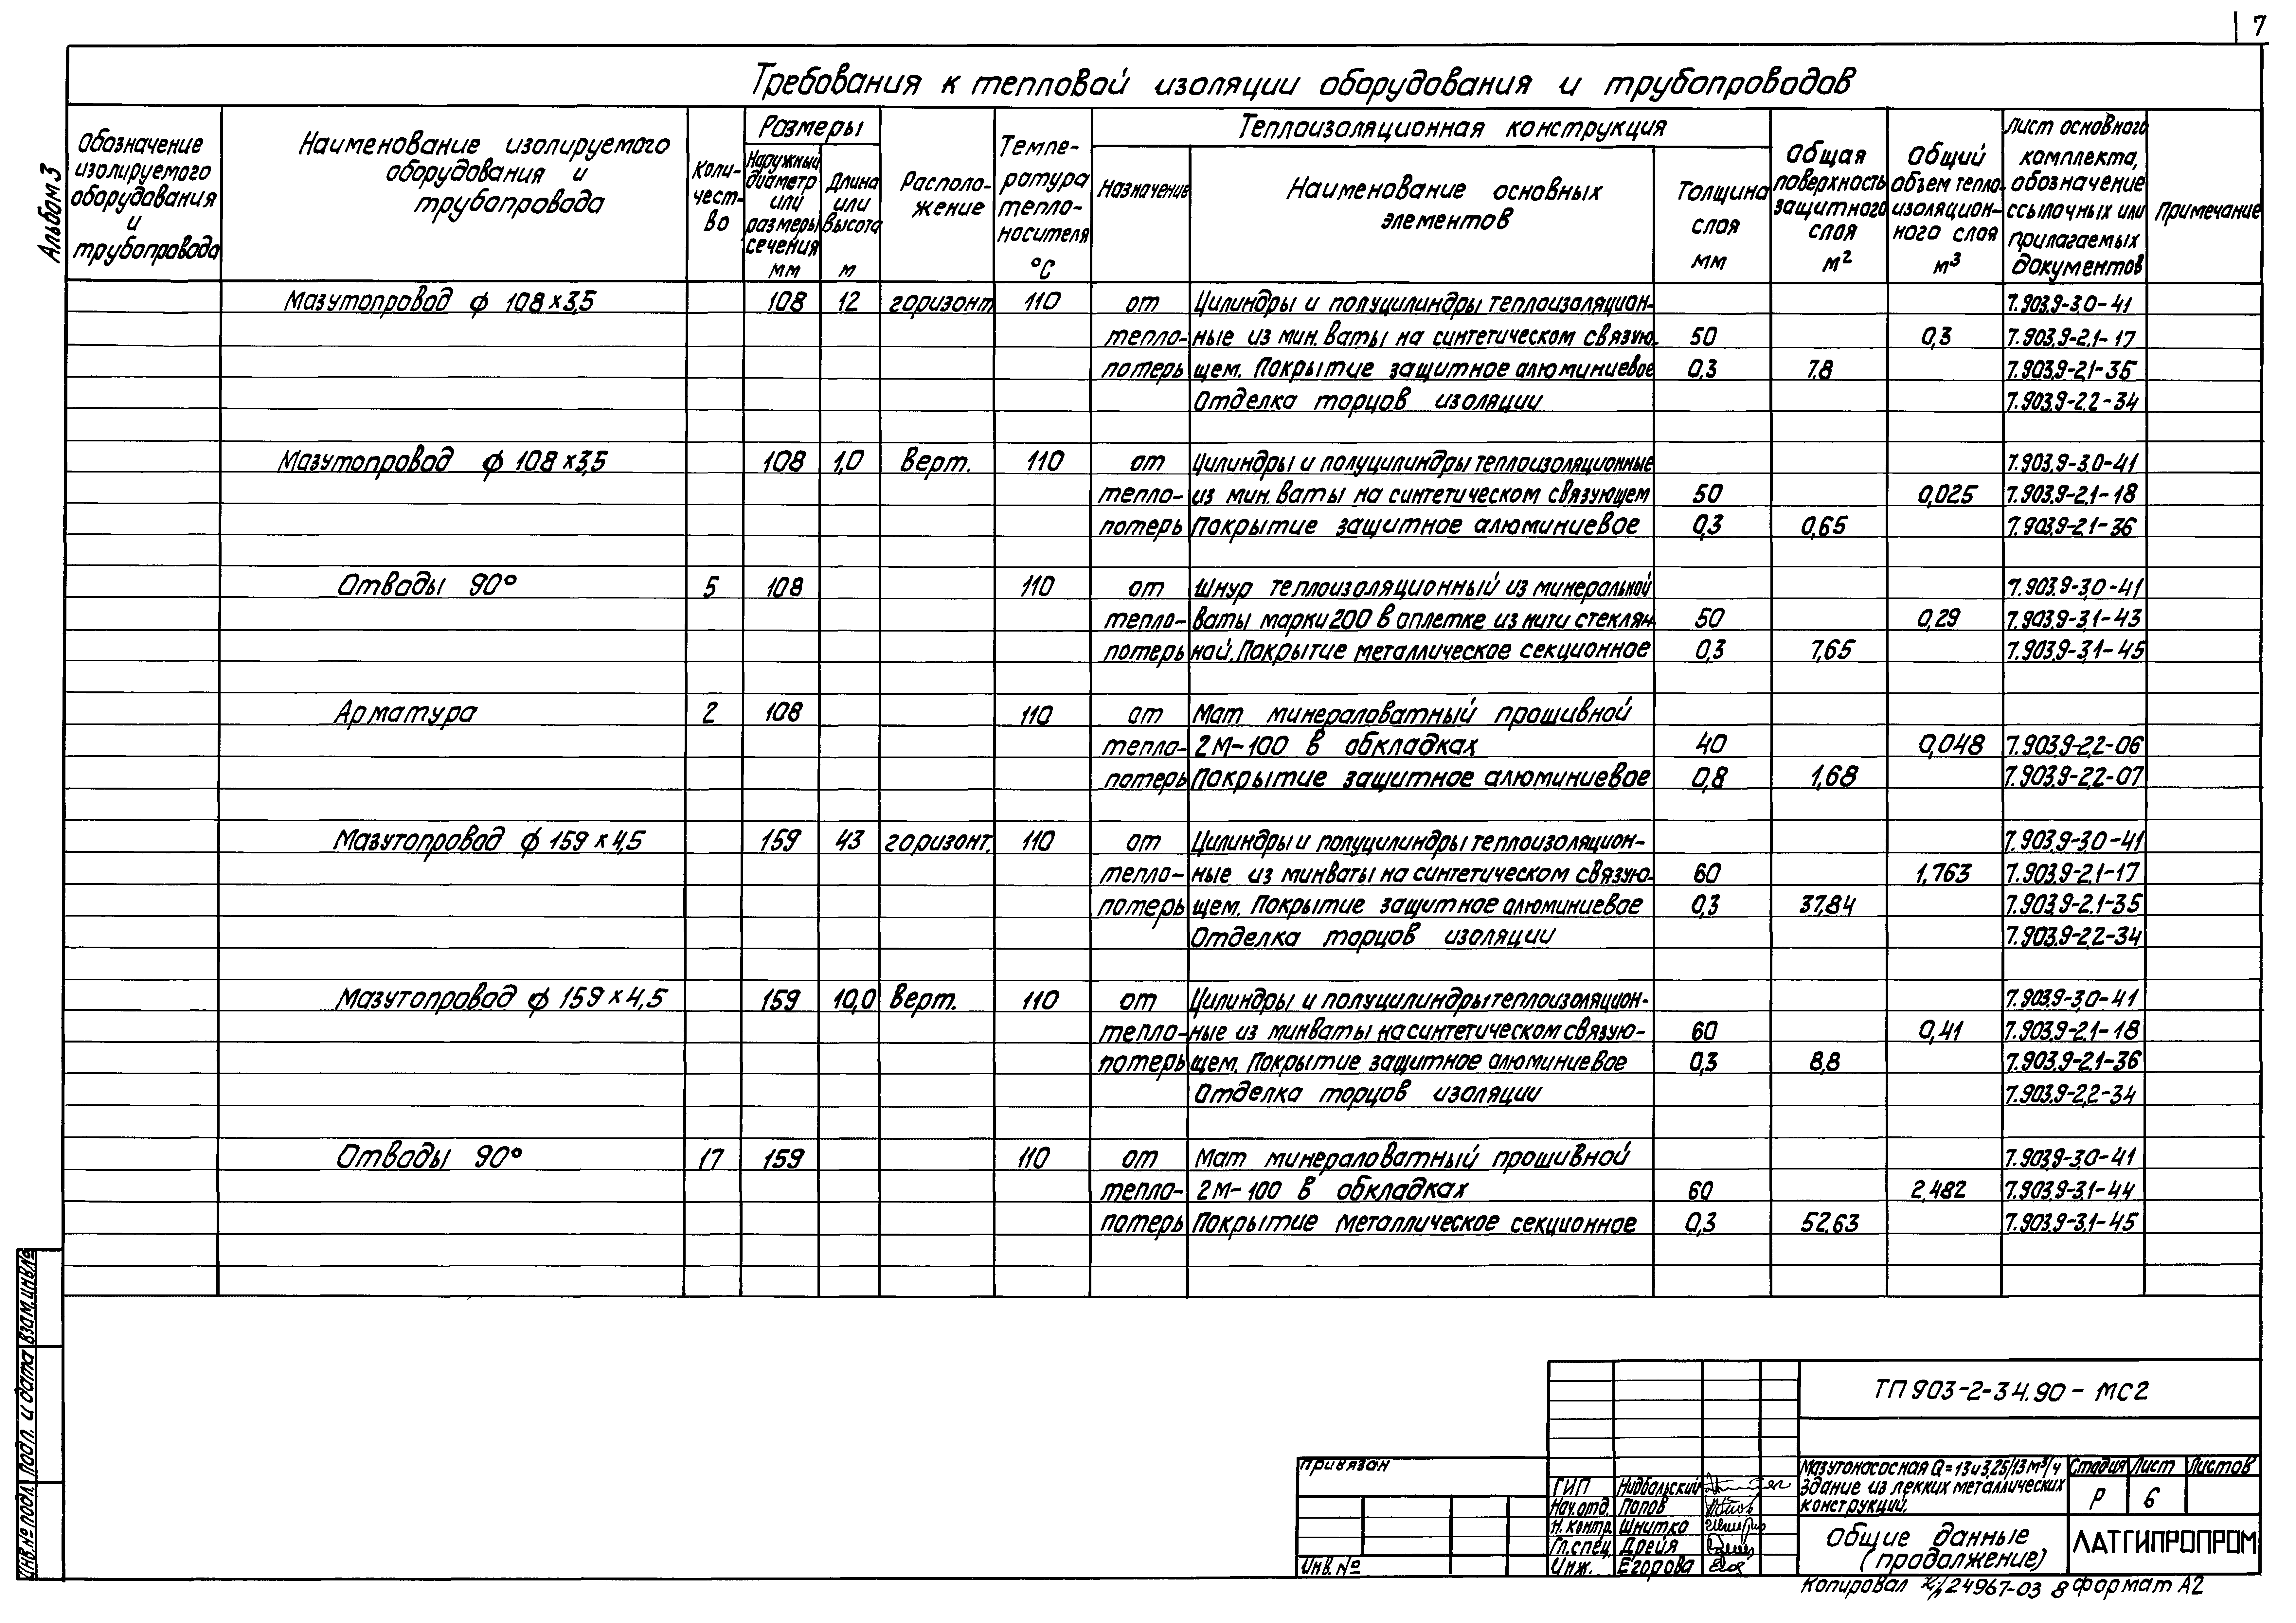 7
Альбом 3
Требования к тепловой изоляции оборудования и трубопроводов
Обозначение изолируемого оборудования и трубопровода
Наименование изолируемого оборудования и трубопровода
Коли- чест- во
Размеры
Наружный диаметр или размеры сечения мм
Длина или высота м
Располо- жение
Темпе- ратура тепло- носителя °С
Теплоизоляционная конструкция
Назначение
Наименование основных элементов
Толщина слоя мм
Общая поверхность защитного слоя м²
Общий объем тепло- изоляцион- ного слоя м³
Лист основного комплекта, обозначение ссылочных или прилагаемых документов
Примечание
Мазутопровод ф 108×3,5 108 12 горизонт 110 от Цилиндры и полуцилиндры теплоизоляцион- 7.903.9-3.0-41
тепло- ные из мин. ваты на синтетическом связую- 50 0,3 7.903.9-2.1-17
потерь щем. Покрытие защитное алюминиевое 0,3 7,8 7.903.9-2.1-35
Отделка торцов изоляции 7.903.9-2.2-34
Мазутопровод ф 108×3,5 108 1,0 верт. 110 от Цилиндры и полуцилиндры теплоизоляционные 7.903.9-3.0-41
тепло- из мин. ваты на синтетическом связующем 50 0,025 7.903.9-2.1-18
потерь Покрытие защитное алюминиевое 0,3 0,65 7.903.9-2.1-36
Отводы 90° 5 108 110 от Шнур теплоизоляционный из минеральной 7.903.9-3.0-41
тепло- ваты марки 200 в оплетке из нити стеклян- 50 0,29 7.903.9-3.1-43
потерь ной. Покрытие металлическое секционное 0,3 7,65 7.903.9-3.1-45
Арматура 2 108 110 от Мат минераловатный прошивной
тепло- 2М-100 в обкладках 40 0,048 7.903.9-2.2-06
потерь Покрытие защитное алюминиевое 0,8 1,68 7.903.9-2.2-07
Мазутопровод ф 159×4,5 159 43 горизонт. 110 от Цилиндры и полуцилиндры теплоизоляцион- 7.903.9-3.0-41
тепло- ные из минваты на синтетическом связую- 60 1,763 7.903.9-2.1-17
потерь щем. Покрытие защитное алюминиевое 0,3 37,84 7.903.9-2.1-35
Отделка торцов изоляции 7.903.9-2.2-34
Мазутопровод ф 159×4,5 159 10,0 верт. 110 от Цилиндры и полуцилиндры теплоизоляцион- 7.903.9-3.0-41
тепло- ные из минваты на синтетическом связую- 60 0,41 7.903.9-2.1-18
потерь щем. Покрытие защитное алюминиевое 0,3 8,8 7.903.9-2.1-36
Отделка торцов изоляции 7.903.9-2.2-34
Отводы 90° 17 159 110 от Мат минераловатный прошивной 7.903.9-3.0-41
тепло- 2М-100 в обкладках 60 2,482 7.903.9-3.1-44
потерь Покрытие металлическое секционное 0,3 52,63 7.903.9-3.1-45
Взам. инв.№
Подп. и дата
Инв.№ подл.
ТП 903-2-34.90 - МС2
Привязан
Инв. №
ГИП Нидбальский
Нач. отд. Попов
Н. контр. Шнитко
Гл. спец. Дрейя
Инж. Егорова
Мазутонасосная Q=13 и 3,25/13 м³/ч
Здание из легких металлических
конструкций.
Стадия Лист Листов
Р 6
Общие данные
(продолжение)
ЛАТГИПРОПРОМ
Копировал 24967-03 8 формат А2